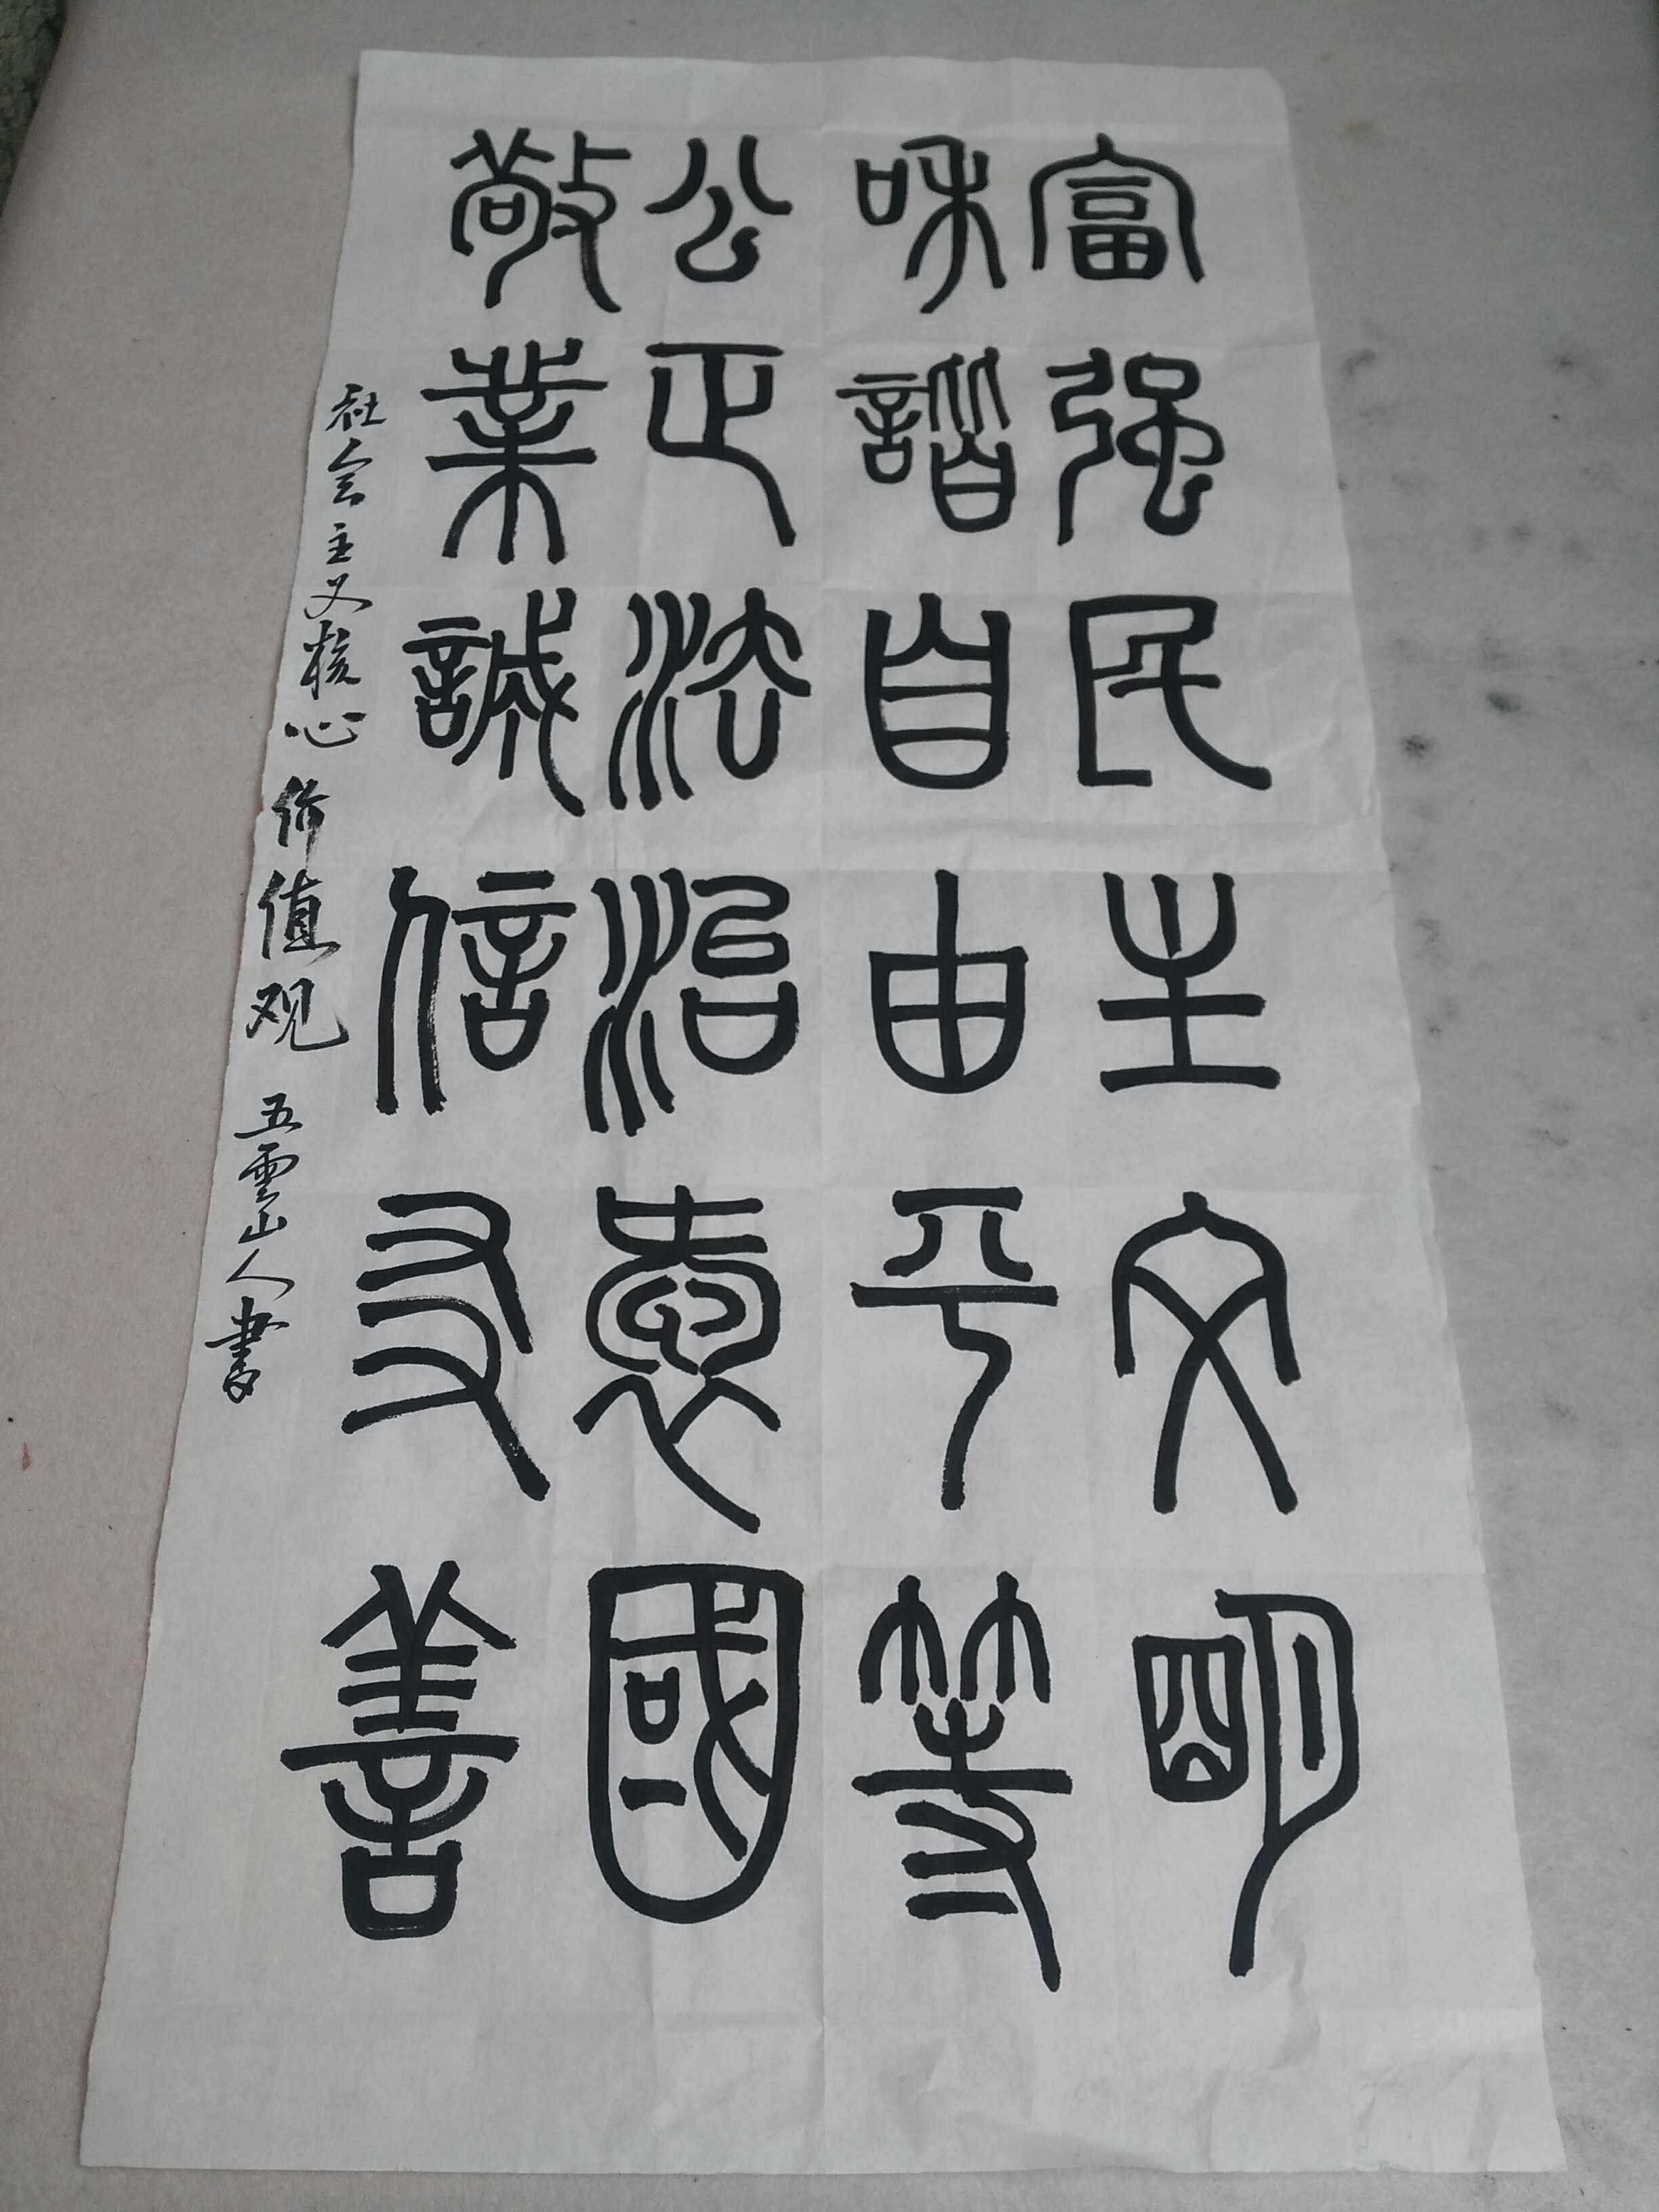 富强民主文明
咊諧自由平等
公正法治愛國
敬業誠信友善
社会主义核心价值观 五雲山人書